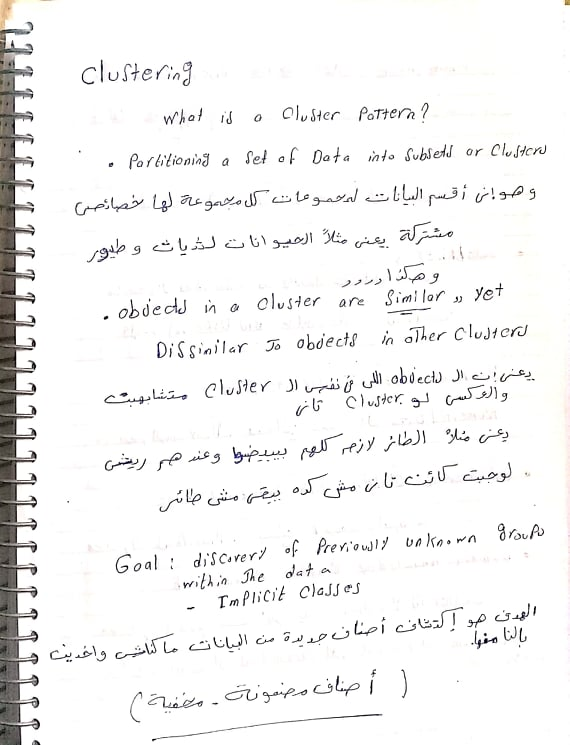 Clustering
What is a Cluster Pattern?
• Partitioning a set of Data into subsets or Clusters
وهو إني أقسم البيانات لمجموعات كل مجموعة لها خصائص
مشتركة يعني مثلاً الحيوانات لثديات و طيور
وهكذا.....
• objects in a cluster are Similar ,, yet
Dissimilar To objects in other Clusters
يعني إن ال objects اللي في نفس ال Cluster متشابهين
والعكس لو Cluster تاني
يعني مثلاً الطائر لازم كلهم بيبيضوا وعندهم ريش
لوجبت كائن تاني مش كده يبقى مش طائر.
Goal : discovery of Previously unknown groups
within The data
- Implicit Classes
الهدف هو إكتشاف أصناف جديدة من البيانات ماكناش واخدين
بالنا منها.
(أصناف مضمونة - مخفية)